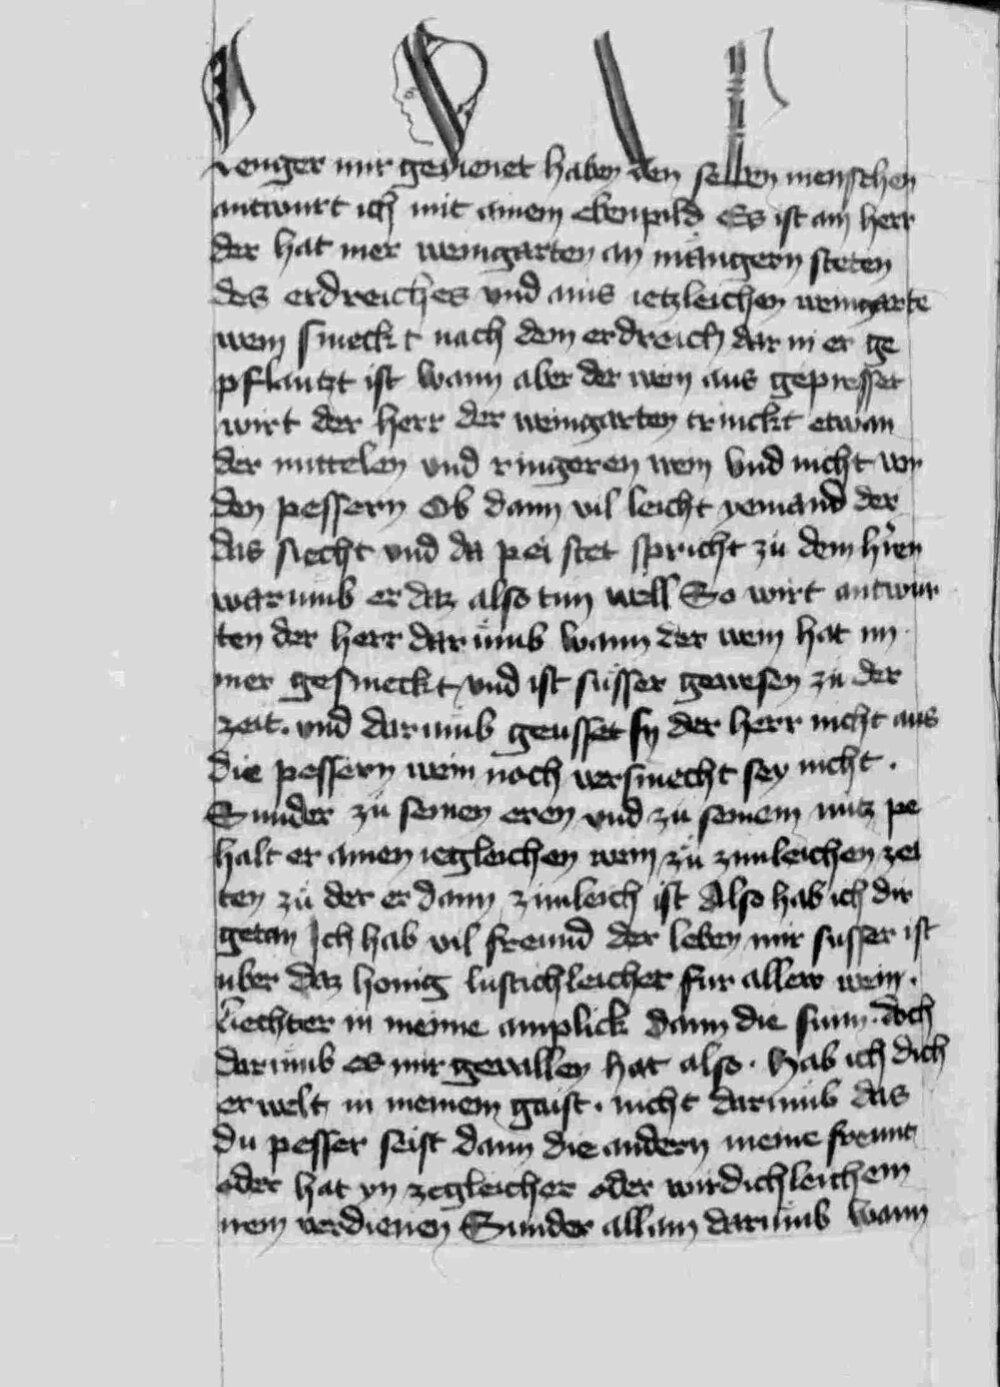 lenger mir gedienet haben den selben menschen
antwurt ich mit ainem ebenpild Es ist ain herr
der hat mer weingarten an mangern steten
des erdreiches und aus ietzleichen weingarte
wein smeckt nach dem erdreich dar in er ge
pflantzt ist Wann aber der wein aus gepresset
wirt der herr der weingarten trinckt etwan
der mittelen und ringeren wein Und nicht von
den pessern Ob dann vil leicht yemand der
das siecht und da pei stet spricht zu dem hren
warumb er daz also tun well So wirt antwur
ten der herr darumb Wann der wein hat im
mer gesmeckt und ist susser gewesen zu der
zeit. und darumb geusset sy der herr nicht aus
die pessern wein noch versmecht sey nicht .
Sunder zu seinen eren und zu seinem nutz pe
halt er ainen iegleichen wein zu zimleichen zei
ten zu der er dann zimleich ist Also hab ich dir
getan Ich hab vil freund der leben mir susser ist
uber daz honig lustichleicher fur allew wein .
liechter in meine anplick dann die sunn . doch
darumb es mir gevallen hat also . Hab ich dich
erwelt in meinem gaist . nicht darumb das
du pesser seist dann die andern meine freunt
oder hat yn zegleicher oder wirdichleichem
nem verdienen Sunder allain darumb Wann